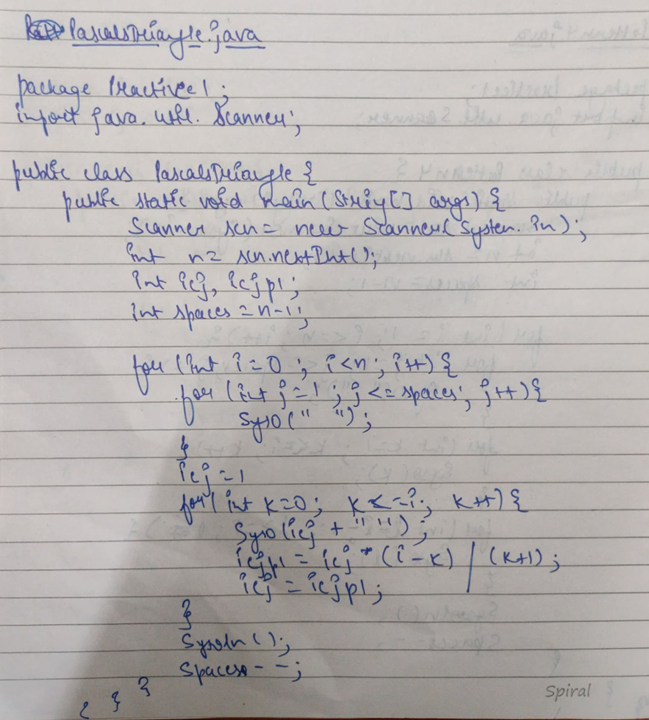 PascalsTriangle.java
package Practice1;
import java.util.Scanner;
public class PascalsTriangle {
public static void main(String[] args) {
Scanner scn = new Scanner(System.in);
int n = scn.nextInt();
int icj, icjp1;
int spaces = n-1;
for (int i=0 ; i<n ; i++) {
for (int j=1 ; j<=spaces; j++){
Syso(" ");
}
icj = 1
for (int k=0; k<=i; k++) {
Syso(icj + " ");
icjp1 = icj * (i-k) / (k+1);
icj = icjp1;
}
Sysoln();
Spaces--;
}
}
Spiral